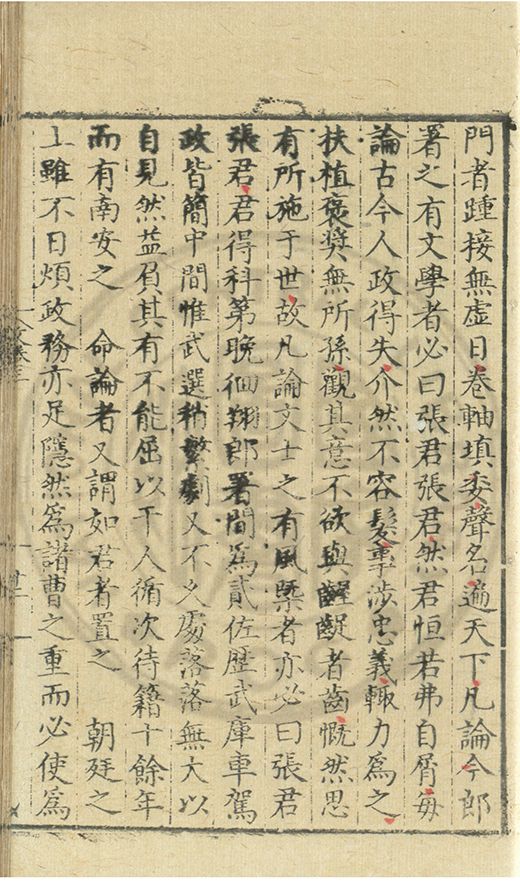 門者踵接無虛日卷軸填委聲名遍天下凡論今郎
署之有文學者必曰張君張君然君恒若弗自屑每
論古今人政得失介然不容髮事涉忠義輙力為之
扶植褒奬無所孫觀其意不欲與齷齪者齒慨然思
有所施于世故凡論文士之有風槩者亦必曰張君
張君君得科第晚徊翔郎署間為貳佐歴武庫車駕
政皆簡中間惟武選稍繁劇又不久處落落無大以
自見然益負其有不能屈以干人循次待籍十餘年
而有南安之 命論者又謂如君者置之 朝廷之
上雖不日煩政務亦足隱然為諸曹之重而必使為